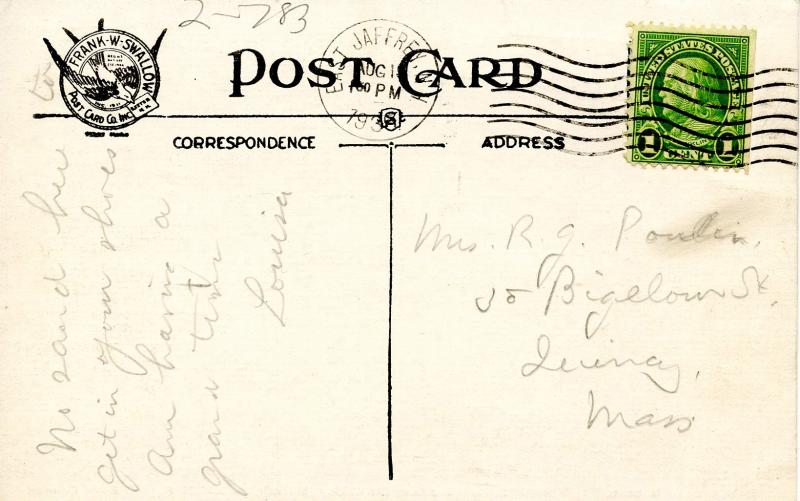 2-783
FRANK-W-SWALLOW
POST CARD CO. INC.
POST CARD
EAST JAFFREY
AUG 1
PM
193
N.H.
UNITED STATES POSTAGE
FRANKLIN
1 1
CENT
CORRESPONDENCE
ADDRESS
No sand here to
get in your shoes
Am having a
grand time
Louisa
Mrs. R. J. Poulin,
35 Bigelow St,
Quincy,
Mass